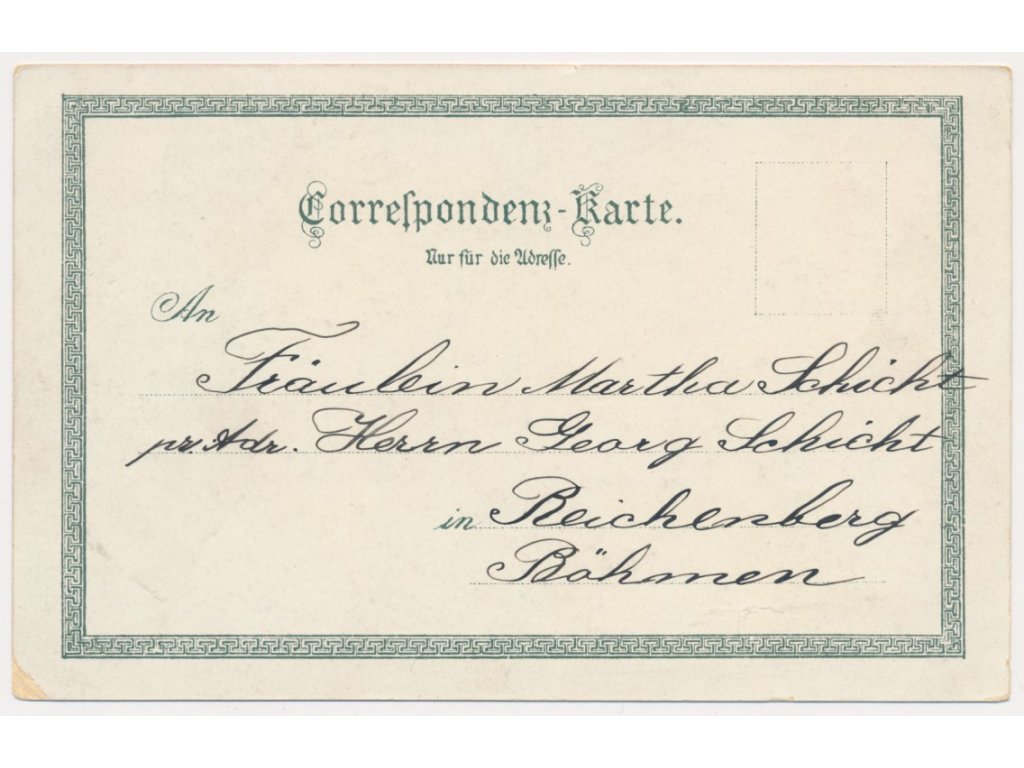 Correspondenz-Karte.
Nur für die Adresse.
An
Fräulein Martha Schicht
pr. Adr. Herrn Georg Schicht
in Reichenberg
Böhmen